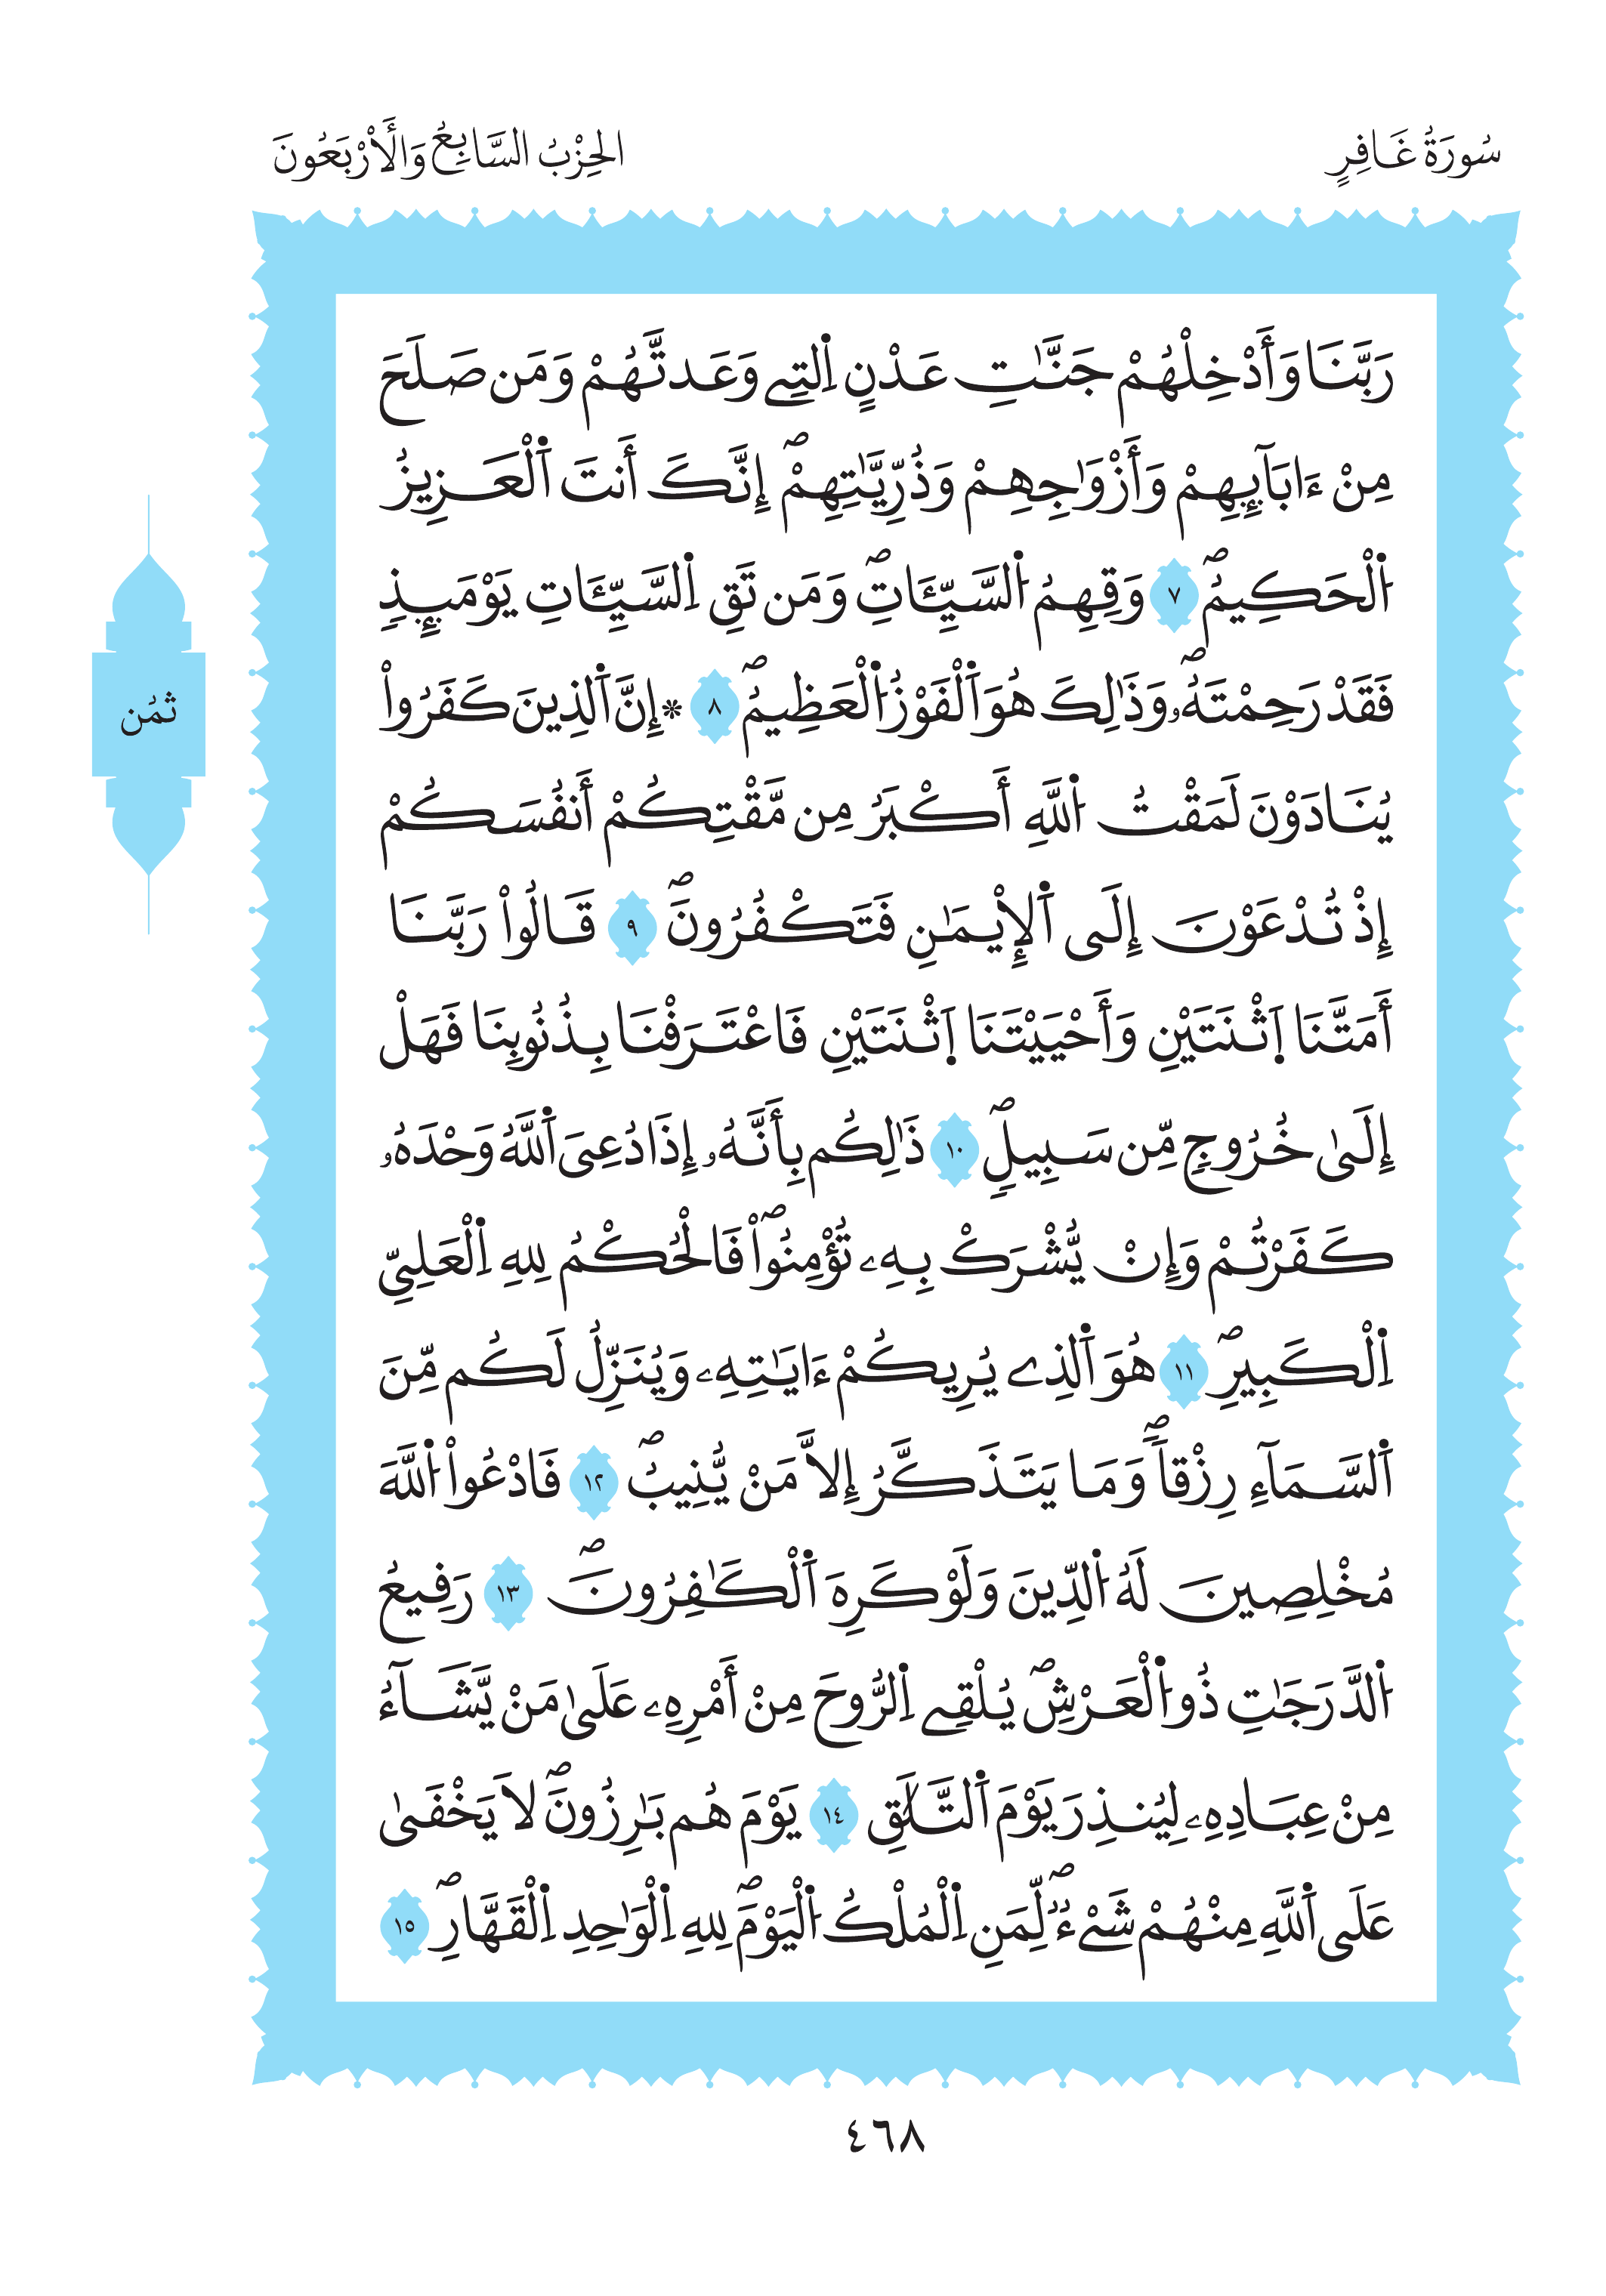 سُورَةُ غَافِرٍ
الحِزْبُ السَّابِعُ وَالأَرْبَعُونَ
رَبَّنَا وَأَدْخِلْهُمْ جَنَّٰتِ عَدْنٍ اِلتِے وَعَدتَّهُمْ وَمَن صَلَحَ
مِنْ ءَابَآئِهِمْ وَأَزْوَٰجِهِمْ وَذُرِّيَّٰتِهِمْۖ إِنَّكَ أَنتَ اَ۬لْعَزِيزُ
اُ۬لْحَكِيمُۖ ٧ وَقِهِمُ اُ۬لسَّيِّـَٔاتِۖ وَمَن تَقِ اِ۬لسَّيِّـَٔاتِ يَوْمَئِذٖ
فَقَدْ رَحِمْتَهُۥۖ وَذَٰلِكَ هُوَ اَ۬لْفَوْزُ اُ۬لْعَظِيمُۖ ٨ ۞إِنَّ اَ۬لذِينَ كَفَرُواْ
يُنَادَوْنَ لَمَقْتُ اُ۬للَّهِ أَكْبَرُ مِن مَّقْتِكُمْ أَنفُسَكُمْ
إِذْ تُدْعَوْنَ إِلَى اَ۬لِايمَٰنِ فَتَكْفُرُونَۖ ٩ قَالُواْ رَبَّنَا
أَمَتَّنَا اَ۪ثْنَتَيْنِ وَأَحْيَيْتَنَا اَ۪ثْنَتَيْنِ فَاعْتَرَفْنَا بِذُنُوبِنَا فَهَلْ
إِلَىٰ خُرُوجٖ مِّن سَبِيلٖۖ ١٠ ذَٰلِكُم بِأَنَّهُۥ إِذَا دُعِيَ اَ۬للَّهُ وَحْدَهُۥ
كَفَرْتُمْ وَإِنْ يُّشْرَكْ بِهِۦ تُؤْمِنُواْۖ فَالْحُكْمُ لِلهِ اِ۬لْعَلِيِّ
اِ۬لْكَبِيرِۖ ١١ هُوَ اَ۬لذِے يُرِيكُمْ ءَايَٰتِهِۦ وَيُنَزِّلُ لَكُم مِّنَ
اَ۬لسَّمَآءِ رِزْقاٗۖ وَمَا يَتَذَكَّرُ إِلاَّ مَنْ يُّنِيبُۖ ١٢ فَادْعُواْ اُ۬للَّهَ
مُخْلِصِينَ لَهُ اُ۬لدِّينَ وَلَوْ كَرِهَ اَ۬لْكَٰفِرُونَۖ ١٣ رَفِيعُ
اُ۬لدَّرَجَٰتِ ذُو اُ۬لْعَرْشِۖ يُلْقِے اِ۬لرُّوحَ مِنْ أَمْرِهِۦ عَلَىٰ مَنْ يَّشَآءُ
مِنْ عِبَادِهِۦ لِيُنذِرَ يَوْمَ اَ۬لتَّلَٰقِ ١٤ يَوْمَ هُم بَٰرِزُونَۖ لاَ يَخْفَىٰ
عَلَى اَ۬للَّهِ مِنْهُمْ شَيْءٞۖ لِّمَنِ اِ۬لْمُلْكُ اُ۬لْيَوْمَۖ لِلهِ اِ۬لْوَٰحِدِ اِ۬لْقَهَّارِۖ ١٥
ثُمُن
٤٦٨